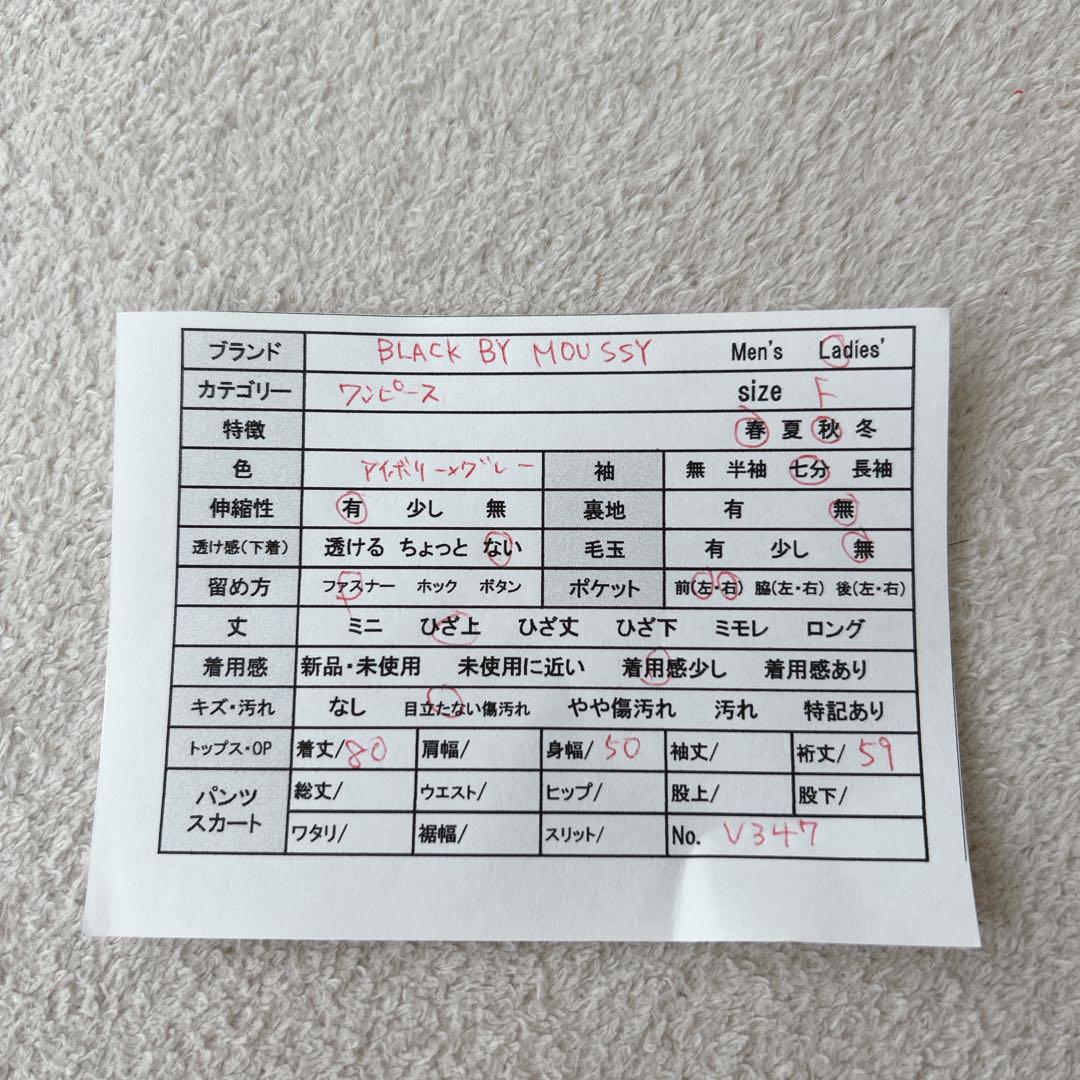 ブランド BLACK BY MOUSSY Men's Ladies'
カテゴリー ワンピース size F
特徴 春 夏 秋 冬
色 アイボリー×グレー 袖 無 半袖 七分 長袖
伸縮性 有 少し 無 裏地 有 無
透け感(下着) 透ける ちょっと ない 毛玉 有 少し 無
留め方 ファスナー ホック ボタン ポケット 前(左・右) 脇(左・右) 後(左・右)
丈 ミニ ひざ上 ひざ丈 ひざ下 ミモレ ロング
着用感 新品・未使用 未使用に近い 着用感少し 着用感あり
キズ・汚れ なし 目立たない傷汚れ やや傷汚れ 汚れ 特記あり
トップス・OP 着丈/80 肩幅/ 身幅/50 袖丈/ 裄丈/59
パンツ スカート 総丈/ ウエスト/ ヒップ/ 股上/ 股下/
ワタリ/ 裾幅/ スリット/ No. V347